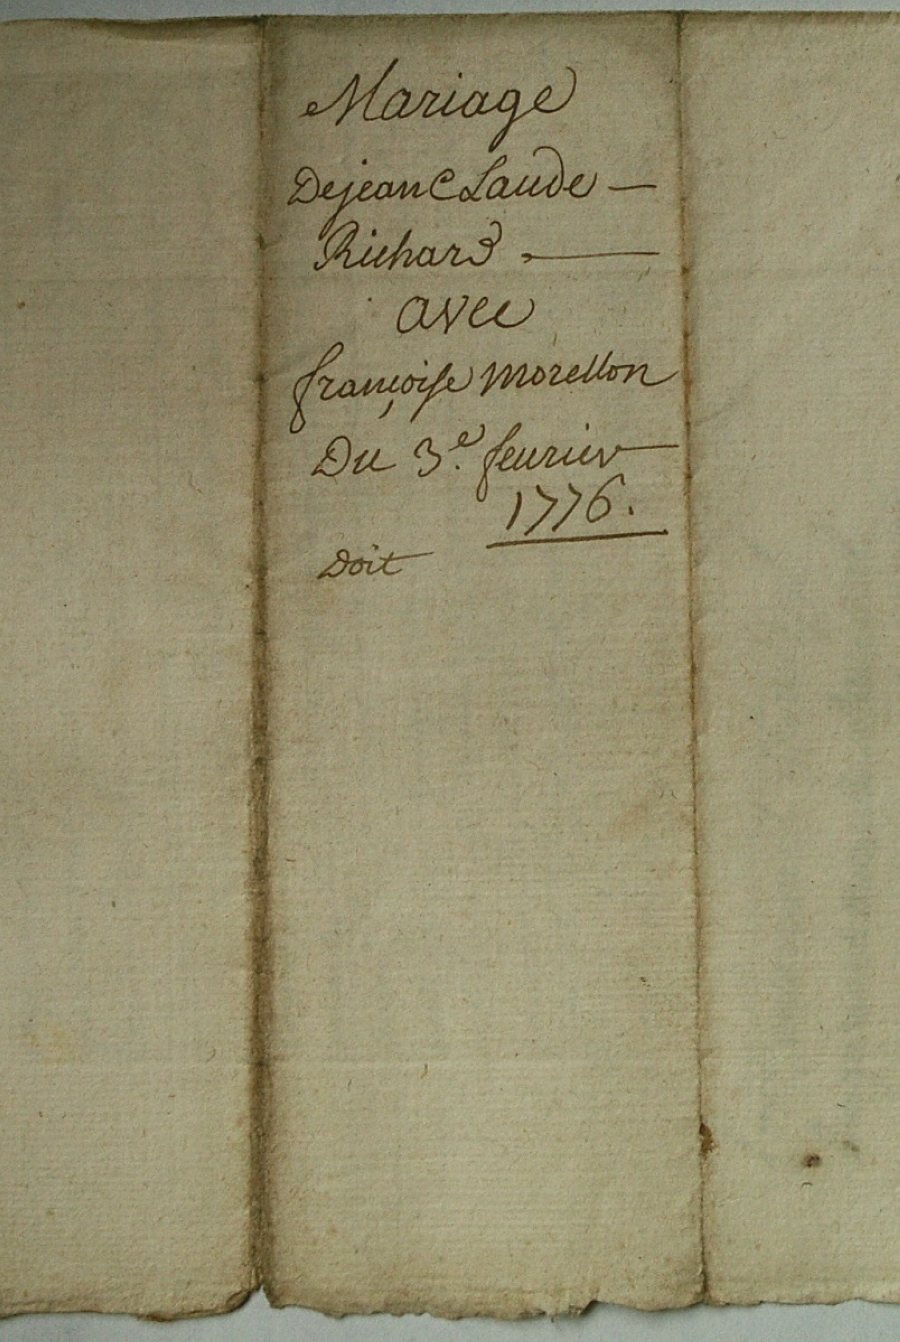 Mariage
De jean Claude —
Richard . —
avec
françoise morellon
Du 3.e feurier —
1776.
Doit